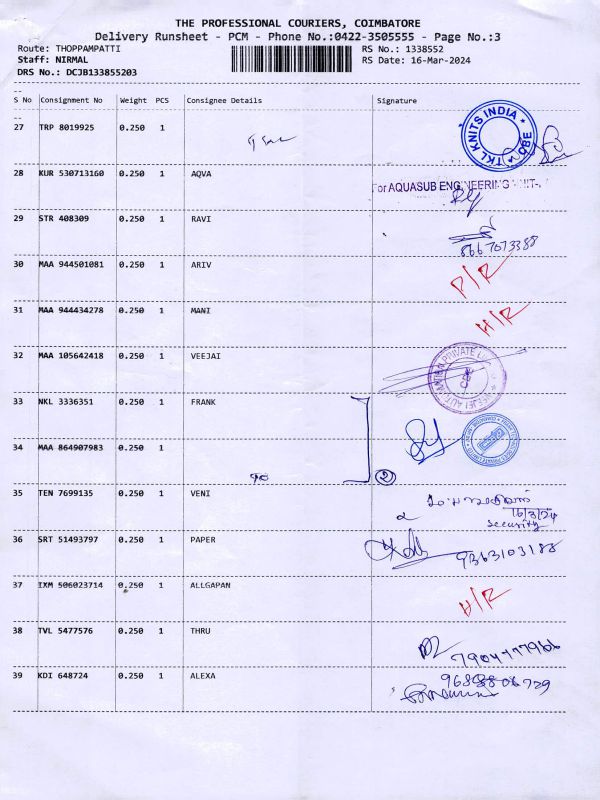 THE PROFESSIONAL COURIERS, COIMBATORE
Delivery Runsheet - PCM - Phone No.:0422-3505555 - Page No.:3
Route: THOPPAMPATTI
RS No.: 1338552
Staff: NIRMAL
RS Date: 16-Mar-2024
DRS No.: DCJB133855203
S No Consignment No Weight PCS Consignee Details Signature
27 TRP 8019925 0.250 1
TKL KNITS INDIA
28 KUR 530713160 0.250 1 AQVA
For AQUASUB ENGINEERING UNIT-
29 STR 408309 0.250 1 RAVI
8667073388
30 MAA 944501081 0.250 1 ARIV
P/R
31 MAA 944434278 0.250 1 MANI
H/R
32 MAA 105642418 0.250 1 VEEJAI
33 NKL 3336351 0.250 1 FRANK
34 MAA 864907983 0.250 1
2
35 TEN 7699135 0.250 1 VENI
16/3/24
security
36 SRT 51493797 0.250 1 PAPER
9363103188
37 IXM 506023714 0.250 1 ALLGAPAN
H/R
38 TVL 5477576 0.250 1 THRU
39 KDI 648724 0.250 1 ALEXA